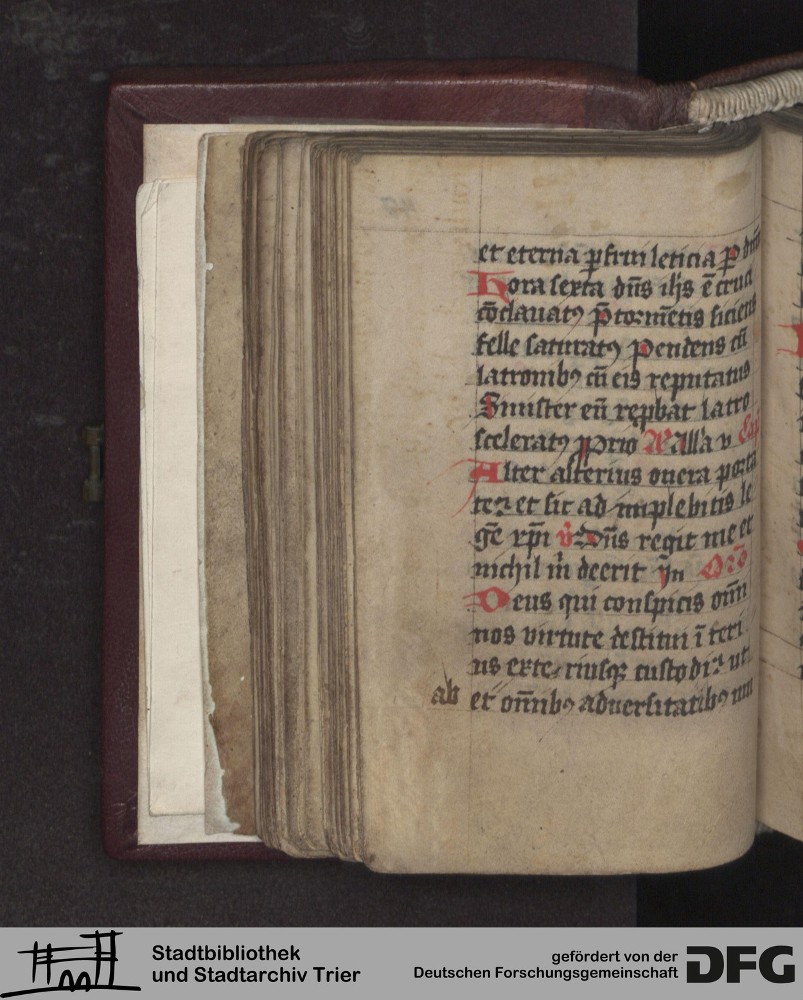 et eterna ꝑfrui leticia ꝑ dn̄m
Hora sexta dn̄s ih̄s ē cruci
cōclauatꝰ p̄ tormētis siciens
felle saturatꝰ Pendens cū
latronibꝰ cū eis reputatus
Sinister eū
sceleratꝰ ꝓprio Alla v Cap
Alter alterius onera porta
te et sic ad implebitis le
gē xp̄i v̄ Dn̄s regit me et
nichil m̄ deerit yn Orō
Deus qui conspicis om̄i
nos virtute destitui īteri
us exteriusqꝫ custodi ut
ab et om̄ibꝰ aduersitatibꝰ mu
Stadtbibliothek
und Stadtarchiv Trier
gefördert von der
Deutschen Forschungsgemeinschaft
DFG